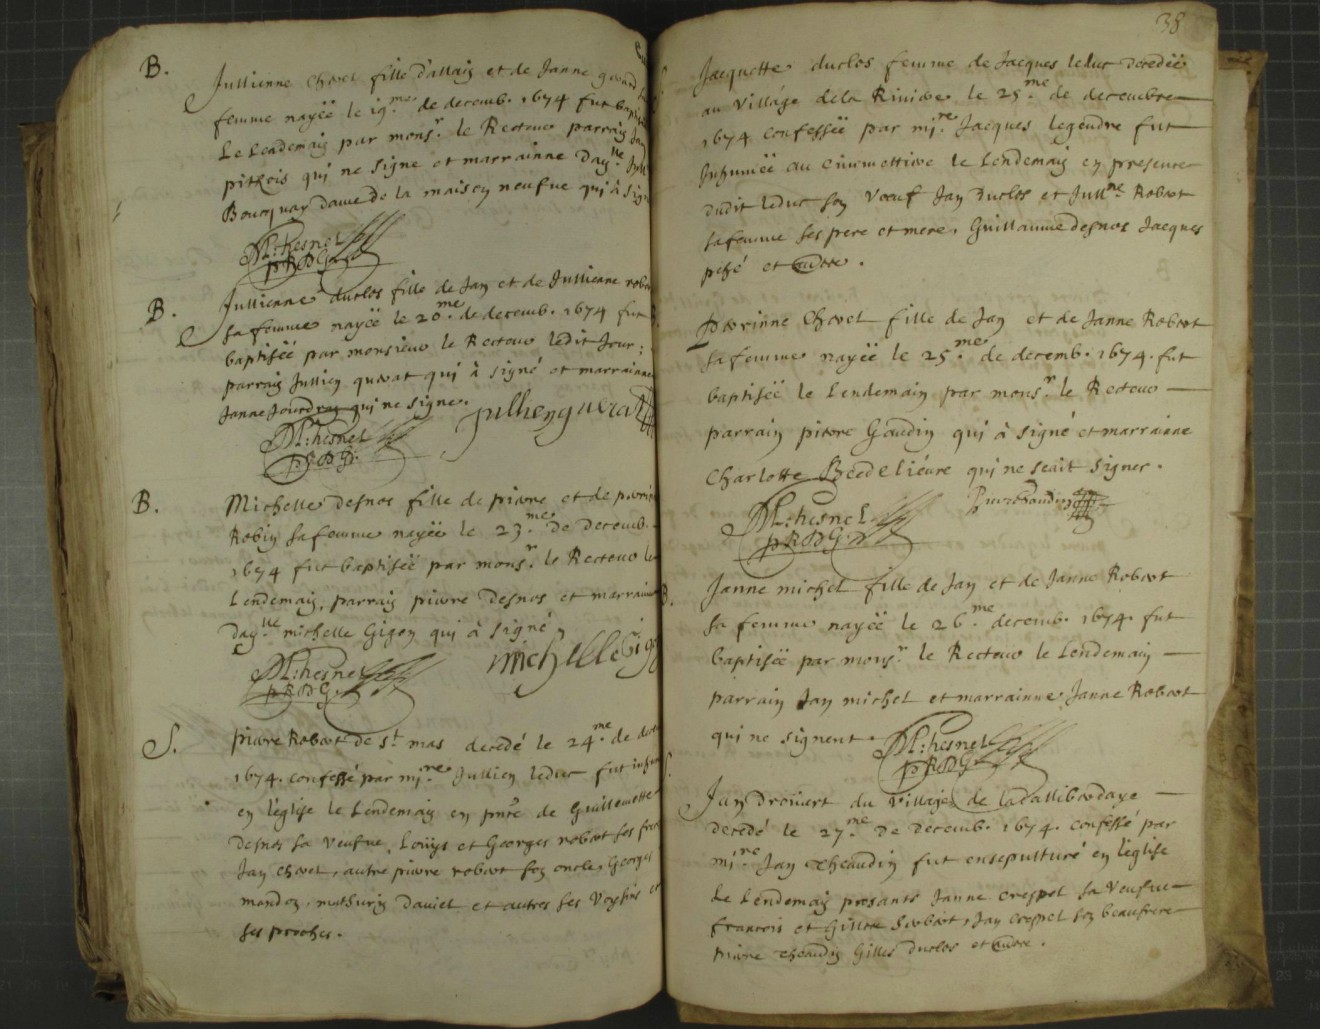 B.
Jullienne Chovel fille d'allain et de Janne
femme nayëe le 19.me de decemb. 1674 fut baptisée
Le Lendemain par mons.r le Recteur parrain
pithois qui ne signe et marrainne Day.lle
Boucquay dame de la maison neufue qui à signé
M: hesnel
p R D G
B.
Jullienne duclos fille de Jan et de Jullienne
sa femme nayëe le 20.me de decemb. 1674 fut
baptisëe par monsieur le Recteur ledit Jour ;
parrain Jullien quevat qui à signé et marrainne
Janne Jourdran qui ne signe.
M: hesnel
p R D G
B.
Michelle Desnos fille de pierre et de
Robin sa femme nayëe le 23.me de decemb.
1674 fut baptisëe par mons.r le Recteur le
Lendemain, parrain pierre Desnos et marrainne
Day.lle michelle Gigon qui à signé
michelle Gigon
M: hesnel
p R D G
S.
pierre Robert de S.t mas decedé le 24.me de
1674. confessé par mi.re Jullien leduc fut
en l'eglise le Lendemain en pnce de Guillemette
desnos sa veufue, Loüys et Georges robert ses
Jan chovel, autre pierre robert son oncle, Georges
mondon, mathurin daniel et autres ses Voysins et
ses proches.
38
Jacquette duclos femme de Jacques leduc decedëe
au village dela Riviere le 25.me de decembre
1674 confessëe par mi.re Jacques legendre fut
Inhumëe au Cimmettiere le Lendemain en presence
dudit leduc son Voeuf Jan Duclos et Jull.ne Robert
sa femme ses pere et mere, Guillaume desnos Jacques
et autres.
Perrinne Chovel fille de Jan et de Janne Robert
sa femme nayëe le 25.me de decemb. 1674. fut
baptisëe le Lendemain par mons.r le Recteur
parrain pierre Gaudin qui à signé et marrainne
Charlotte Beedelieure qui ne scait signer.
M: hesnel
p R D G
B.
Janne michel fille de Jan et de Janne Robert
sa femme nayëe le 26.me decemb. 1674. fut
baptisëe par mons.r le Recteur le Lendemain
parrain Jan michel et marrainne Janne Robert
qui ne signent.
M: hesnel
p R D G
Jan Droüert du Village de
decedé le 27.me de decemb. 1674. confessé par
mi.re Jan Cheaudin fut ensepulturé en l'eglise
Le Lendemain presants Janne Crespel sa Veufue
francois et Gillette Jan Crespel son beaufrere
pierre cheaudin Gilles duclos et autres.